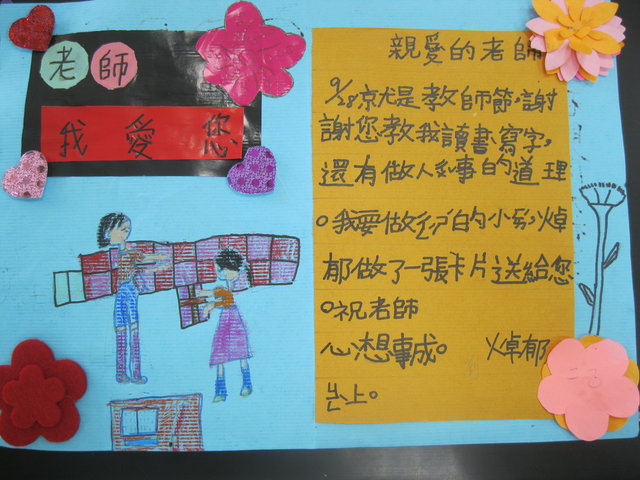 老師
我愛您
親愛的老師
9/28就是教師節,謝
謝您教我讀書寫字,
還有做人事的道理
。我要做的小,焯
郁做了一張卡片送給您
。祝老師
心想事成。 焯郁
上。